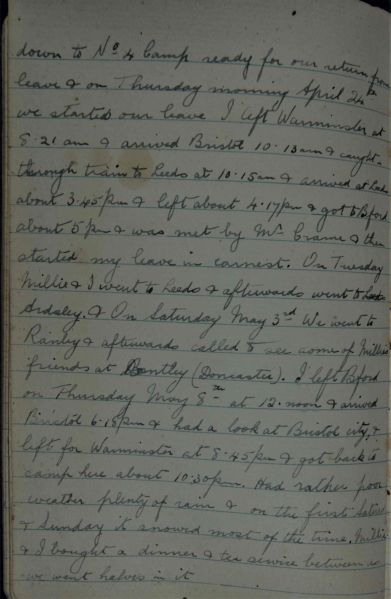 down to No 4 Camp ready for our return from
leave & on Thursday morning April 24th
we started our leave I left Warminster at
8.21 am & arrived Bristol 10.13am & caught
through train to Leeds at 10.15am & arrived at Leeds
about 3.45pm & left about 4.17pm & got to B'ford
about 5pm & was met by Mr Crame & then
started my leave in earnest. On Tuesday
Millie & I went to Leeds & afterwards went to
Ardsley. & On Saturday May 3rd We went to
& afterwards called to see some of Millies
friends at Bentley (Doncaster). I left B'ford
on Thursday May 8th at 12.noon & arrived
Bristol 6.18pm & had a look at Bristol city, &
left for Warminster at 8.45pm & got back to
camp here about 10.30pm. Had rather poor
weather plenty of rain & on the first Saturd
& Sunday it snowed most of the time. Millie
& I bought a dinner & tea service between us
we went halves in it